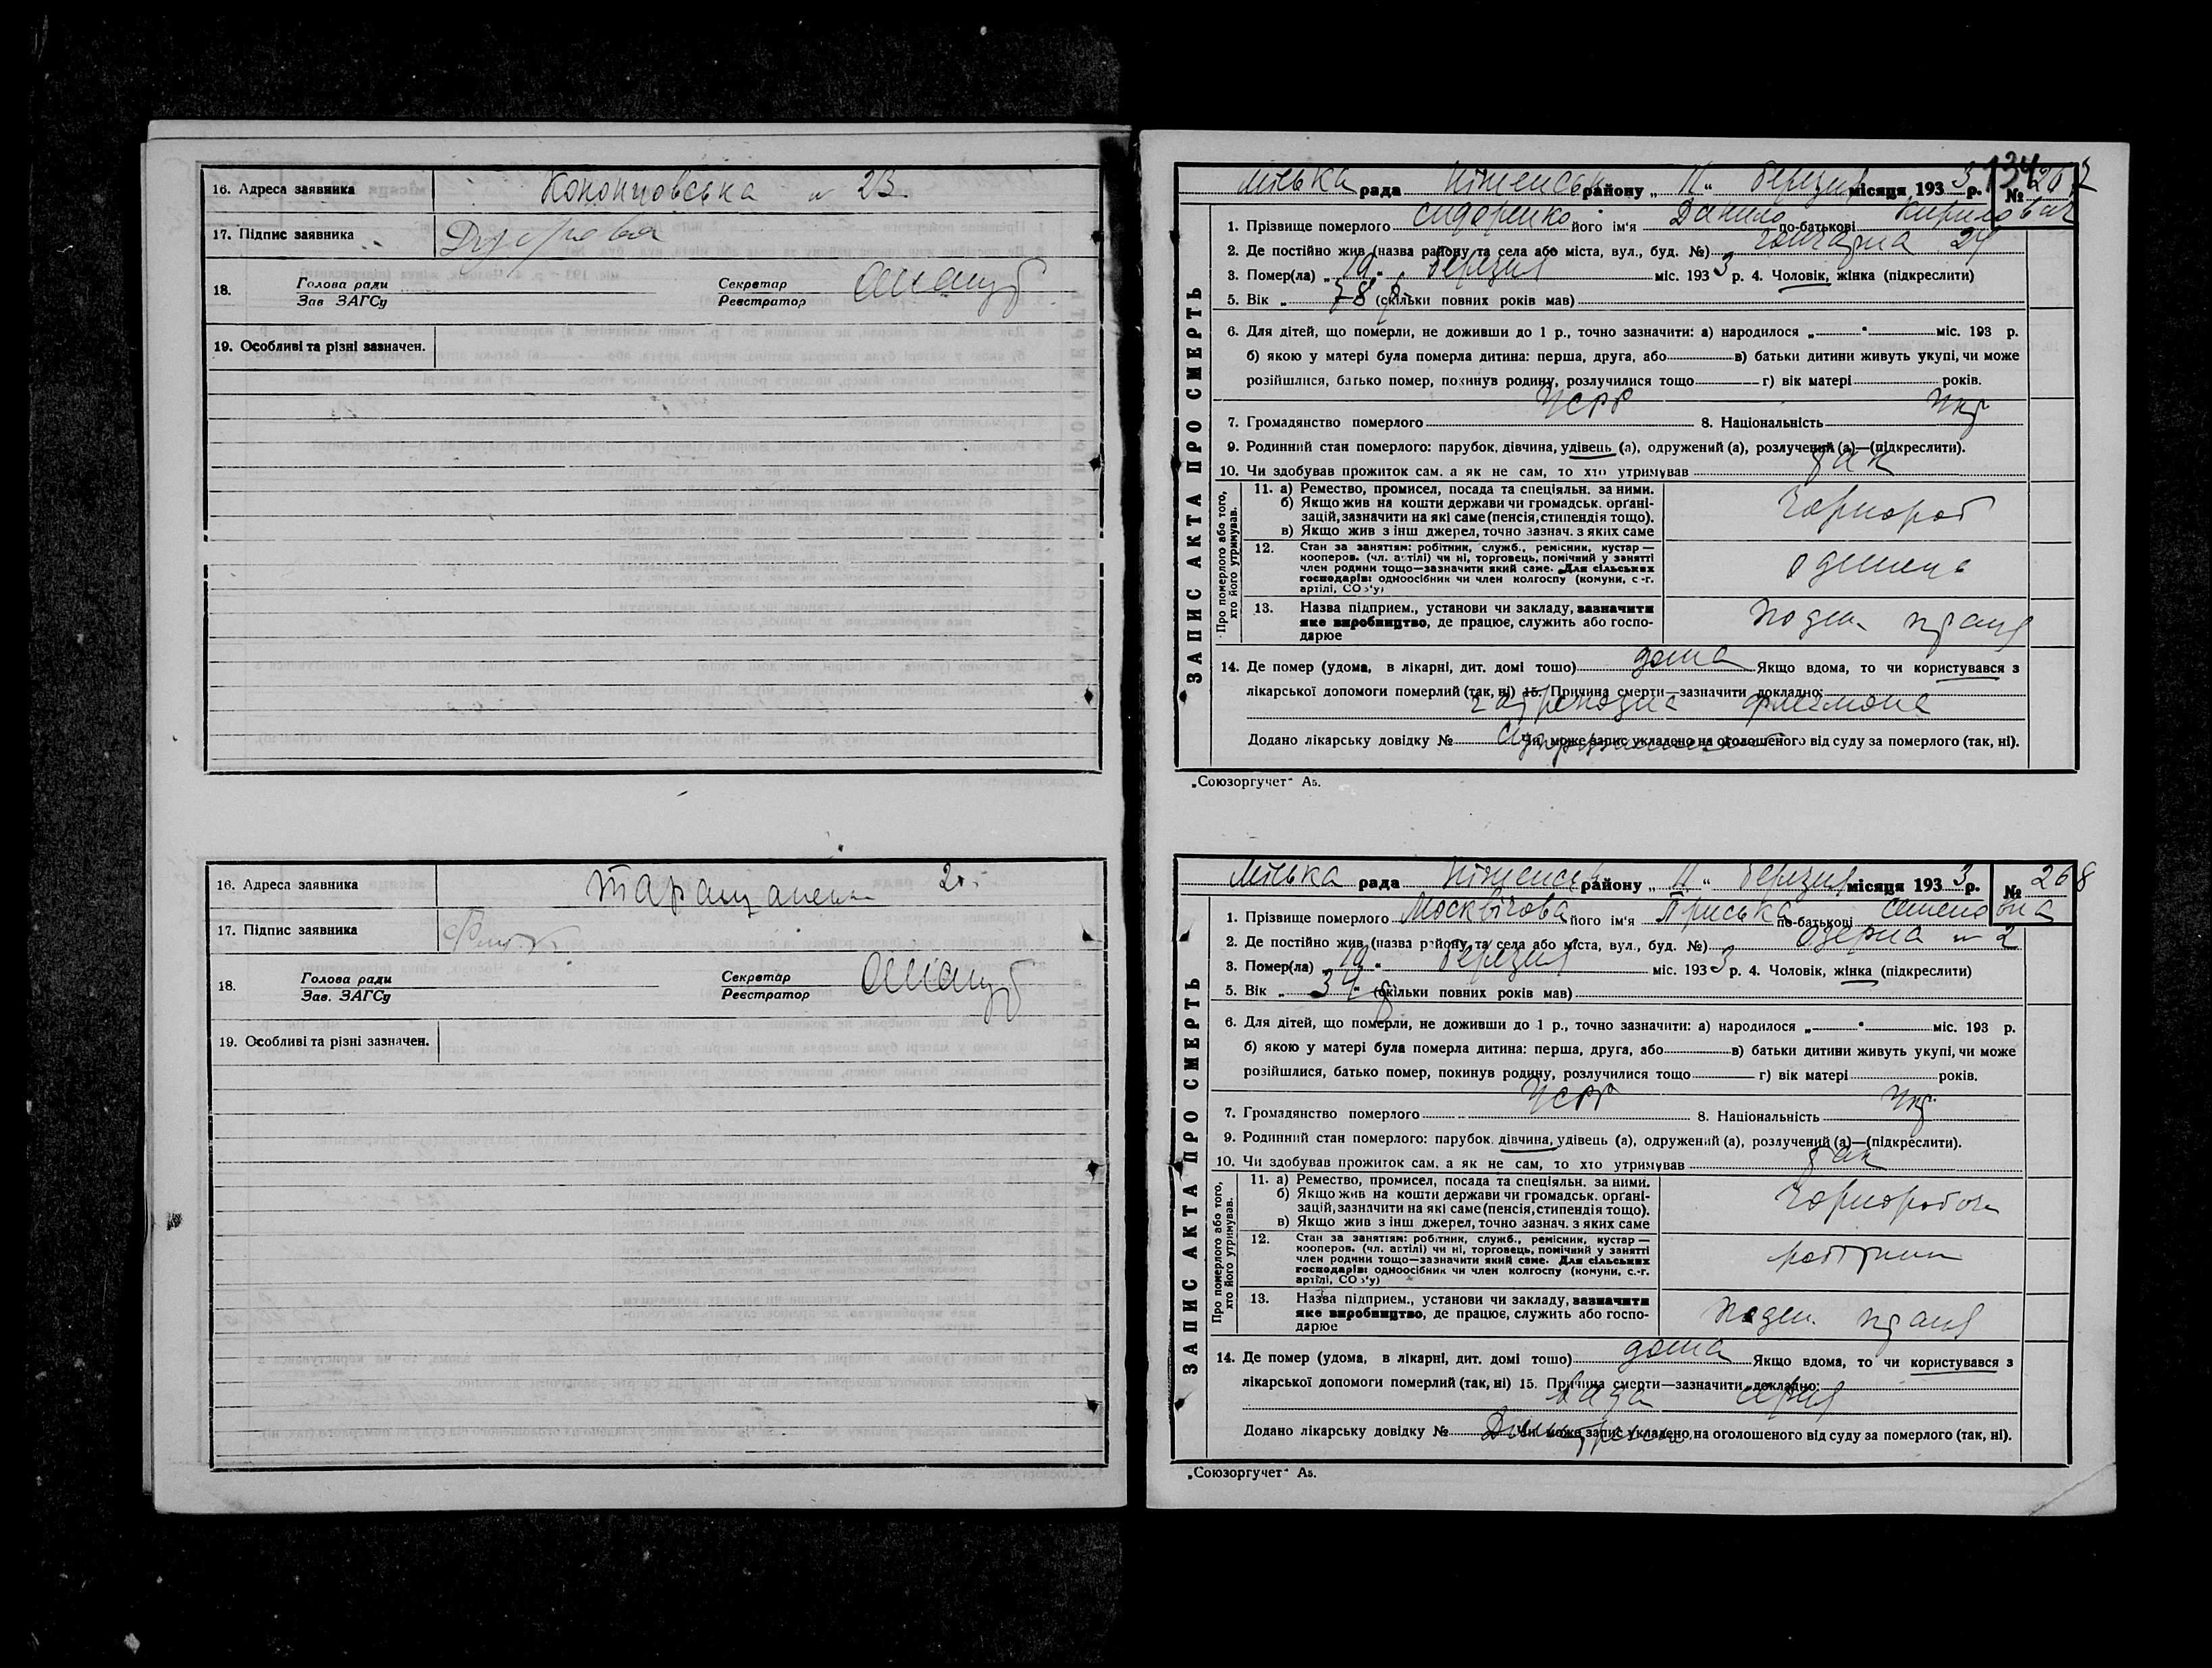 16. Адреса заявника Кононовська № 23
17. Підпис заявника
18. Голова ради
Зав ЗАГСу
Секретар
Реєстратор
19. Особливі та різні зазначен.
16. Адреса заявника
17. Підпис заявника
18. Голова ради
Зав. ЗАГСу
Секретар
Реєстратор
19. Особливі та різні зазначен.
134
Міська рада Ніженськ району „ 11 “ березня місяця 1933 р. № 267
ЗАПИС АКТА ПРО СМЕРТЬ
1. Прізвище померлого Сидоренко його ім'я Данило по-батькові Кирилович
2. Де постійно жив (назва району та села або міста, вул., буд. №) Гончарна 24
3. Помер(ла) „ 10 “ березня міс. 1933 р. 4. Чоловік, жінка (підкреслити)
5. Вік „ 78 р. (скільки повних років мав)
6. Для дітей, що померли, не доживши до 1 р., точно зазначити: а) народилося „ “ міс. 193 р.
б) якою у матері була померла дитина: перша, друга, або в) батьки дитини живуть укупі, чи може
розійшлися, батько помер, покинув родину, розлучилися тощо г) вік матері років.
7. Громадянство померлого УСРР 8. Національність Укр
9. Родинний стан померлого: парубок, дівчина, удівець (а), одружений (а), розлучений (а)—(підкреслити).
10. Чи здобував прожиток сам, а як не сам, то хто утримував так
Про померлого або того,
хто його утримував.
11. а) Ремество, промисел, посада та спеціяльн. за ними.
б) Якщо жив на кошти держави чи громадськ. орґані-
зацій, зазначити на які саме (пенсія, стипендія тощо).
в) Якщо жив з інш джерел, точно зазнач. з яких саме
Чорнороб
12. Стан за заняттям: робітник, служб., ремісник, кустар—
кооперов. (чл. артілі) чи ні, торговець, помічний у занятті
член родини тощо—зазначити який саме. Для сільських
господарів: одноосібник чи член колгоспу (комуни, с.-г.
артілі, СОЗ'у)
13. Назва підприєм., установи чи закладу, зазначити
яке виробництво, де працює, служить або госпо-
дарює
поден. праця
14. Де помер (удома, в лікарні, дит. домі тощо) дома Якщо вдома, то чи користувався з
лікарської допомоги померлий (так, ні) 15. Причина смерти—зазначити докладно:
флегмона
Додано лікарську довідку № Чи може запис укладено на оголошеного від суду за померлого (так, ні).
„Союзоргучет“ А5.
Міська рада Ніженськ району „ 11 “ березня місяця 1933 р. № 268
ЗАПИС АКТА ПРО СМЕРТЬ
1. Прізвище померлого Москвічова його ім'я Пріська по-батькові Семеновна
2. Де постійно жив (назва району та села або міста, вул., буд. №) Озерна № 2
3. Помер(ла) „ 10 “ березня міс. 1933 р. 4. Чоловік, жінка (підкреслити)
5. Вік „ 34 р (скільки повних років мав)
6. Для дітей, що померли, не доживши до 1 р., точно зазначити: а) народилося „ “ міс. 193 р.
б) якою у матері була померла дитина: перша, друга, або в) батьки дитини живуть укупі, чи може
розійшлися, батько помер, покинув родину, розлучилися тощо г) вік матері років.
7. Громадянство померлого УСРР 8. Національність Укр.
9. Родинний стан померлого: парубок, дівчина, удівець (а), одружений (а), розлучений (а)—(підкреслити).
10. Чи здобував прожиток сам, а як не сам, то хто утримував так
Про померлого або того,
хто його утримував.
11. а) Ремество, промисел, посада та спеціяльн. за ними.
б) Якщо жив на кошти держави чи громадськ. орґані-
зацій, зазначити на які саме (пенсія, стипендія тощо).
в) Якщо жив з інш джерел, точно зазнач. з яких саме
Чорнороб
12. Стан за заняттям: робітник, служб., ремісник, кустар—
кооперов. (чл. артілі) чи ні, торговець, помічний у занятті
член родини тощо—зазначити який саме. Для сільських
господарів: одноосібник чи член колгоспу (комуни, с.-г.
артілі, СОЗ'у)
13. Назва підприєм., установи чи закладу, зазначити
яке виробництво, де працює, служить або госпо-
дарює
поден. праця
14. Де помер (удома, в лікарні, дит. домі тощо) дома Якщо вдома, то чи користувався з
лікарської допомоги померлий (так, ні) 15. Причина смерти—зазначити докладно:
вада серця
Додано лікарську довідку № Чи може запис укладено на оголошеного від суду за померлого (так, ні).
„Союзоргучет“ А5.